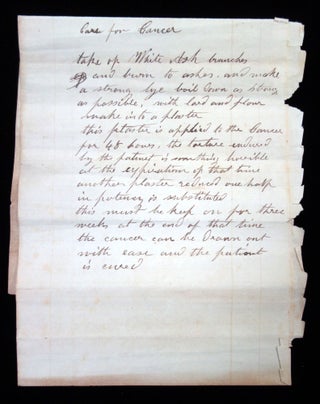 Cure for Cancer
take of White Ash branches
and burn to ashes. and make
a strong lye boil down as strong
as possible, with lard and flour
make into a plaster
this plaster is applied to the Cancer
for 48 hours, the torture endured
by the patient is something horrible
at the expiration of that time
another plaster reduced one half
in potency is substituted
this must be kep on for three
weeks at the end of that time
the cancer can be drawn out
with ease and the patient
is cured